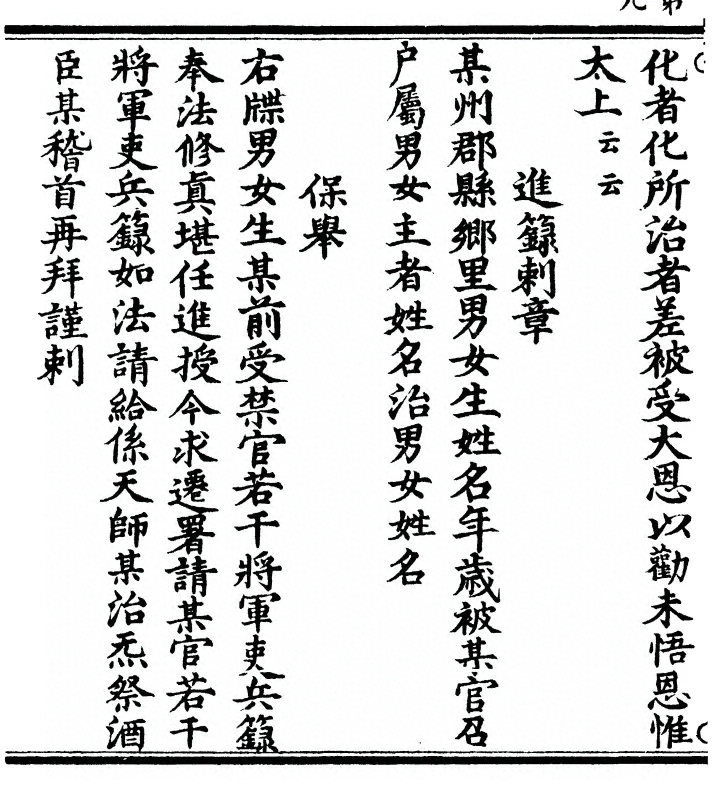 化者化所治者差被受大恩以勸未悟恩惟
太上云云
進籙刺章
某州郡縣鄉里男女生姓名年歲被某官召
户屬男女主者姓名治男女姓名
保舉
右牒男女生某前受禁官若干將軍吏兵籙
奉法修眞堪任進授今求遷署請某官若干
將軍吏兵籙如法請給係天師某治炁祭酒
臣某稽首再拜謹刺